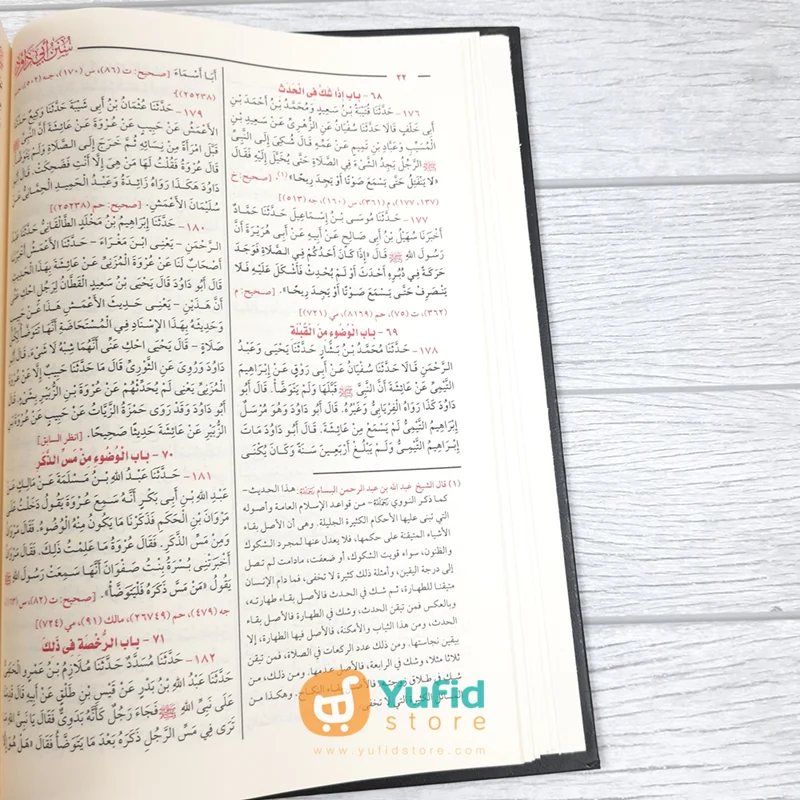 ٢٢
سنن أبي داود
٦٨ - باب إذا شك فى الحدث
١٧٦ - حَدَّثَنَا قُتَيْبَةُ بْنُ سَعِيدٍ وَمُحَمَّدُ بْنُ أَحْمَدَ بْنِ
أَبِى خَلَفٍ قَالَا حَدَّثَنَا سُفْيَانُ عَنِ الزُّهْرِىِّ عَنْ سَعِيدِ بْنِ
الْمُسَيَّبِ وَعَبَّادِ بْنِ تَمِيمٍ عَنْ عَمِّهِ قَالَ شُكِىَ إِلَى النَّبِىِّ
ﷺ الرَّجُلُ يَجِدُ الشَّىْءَ فِى الصَّلَاةِ حَتَّى يُخَيَّلَ إِلَيْهِ فَقَالَ
«لَا يَنْفَتِلُ حَتَّى يَسْمَعَ صَوْتًا أَوْ يَجِدَ رِيحًا»(١). [صحيح: خ
(١٣٧، ١٧٧)، م (٣٦١)، س (١٦٠)، جه (٥١٣)]
١٧٧ - حَدَّثَنَا مُوسَى بْنُ إِسْمَاعِيلَ حَدَّثَنَا حَمَّادٌ
أَخْبَرَنَا سُهَيْلُ بْنُ أَبِى صَالِحٍ عَنْ أَبِيهِ عَنْ أَبِى هُرَيْرَةَ أَنَّ
رَسُولَ اللهِ ﷺ قَالَ «إِذَا كَانَ أَحَدُكُمْ فِى الصَّلَاةِ فَوَجَدَ
حَرَكَةً فِى دُبُرِهِ أَحْدَثَ أَوْ لَمْ يُحْدِثْ فَأَشْكَلَ عَلَيْهِ فَلَا
يَنْصَرِفْ حَتَّى يَسْمَعَ صَوْتًا أَوْ يَجِدَ رِيحًا». [صحيح: م
(٣٦٢)، ت (٧٥)، حم (٨١٦٩)، مي (٧٢١)]
٦٩ - باب الوضوء من القبلة
١٧٨ - حَدَّثَنَا مُحَمَّدُ بْنُ بَشَّارٍ حَدَّثَنَا يَحْيَى وَعَبْدُ
الرَّحْمَنِ قَالَا حَدَّثَنَا سُفْيَانُ عَنْ أَبِى رَوْقٍ عَنْ إِبْرَاهِيمَ
التَّيْمِىِّ عَنْ عَائِشَةَ أَنَّ النَّبِىَّ ﷺ قَبَّلَهَا وَلَمْ يَتَوَضَّأْ. قَالَ أَبُو
دَاوُدَ كَذَا رَوَاهُ الْفِرْيَابِىُّ وَغَيْرُهُ. قَالَ أَبُو دَاوُدَ وَهُوَ مُرْسَلٌ
إِبْرَاهِيمُ التَّيْمِىُّ لَمْ يَسْمَعْ مِنْ عَائِشَةَ. قَالَ أَبُو دَاوُدَ مَاتَ
إِبْرَاهِيمُ التَّيْمِىُّ وَلَمْ يَبْلُغْ أَرْبَعِينَ سَنَةً وَكَانَ يُكْنَى
(١) قال الشيخ عبد الله بن عبد الرحمن البسام: هذا الحديث-
كما ذكر النووي - من قواعد الإسلام العامة وأصوله
التي تبنى عليها الأحكام الكثيرة الجليلة. وهى أن الأصل بقاء
الأشياء المتيقنة على حكمها، فلا يعدل عنها لمجرد الشكوك
والظنون، سواء قويت الشكوك، أو ضعفت، مادامت لم تصل
إلى درجة اليقين، وأمثلة ذلك كثيرة لا تخفى، فما دام الإنسان
متيقنا للطهارة، ثم شك في الحدث فالأصل بقاء طهارته،
وبالعكس فمن تيقن الحدث، وشك في الطهارة فالأصل بقاء
الحدث، ومن هذا الثياب والأمكنة، فالأصل فيها الطهارة، إلا
بيقين نجاستها. ومن ذلك عدد الركعات في الصلاة، فمن تيقن
ثلاثا مثلا، وشك في الرابعة، فالأصل عدمها. ومن ذلك، من
شك في طلاق زوجته فالأصل بقاء النكاح. وهكذا من
المسائل الكثيرة التي لا تخفى.
أَبَا أَسْمَاءَ. [صحيح: ت (٨٦)، س (١٧٠)، جه (٥٠٢)،
(٢٥٢٣٨)]
١٧٩ - حَدَّثَنَا عُثْمَانُ بْنُ أَبِى شَيْبَةَ حَدَّثَنَا وَكِيعٌ حَدَّثَنَا
الْأَعْمَشُ عَنْ حَبِيبٍ عَنْ عُرْوَةَ عَنْ عَائِشَةَ أَنَّ النَّبِىَّ
قَبَّلَ امْرَأَةً مِنْ نِسَائِهِ ثُمَّ خَرَجَ إِلَى الصَّلَاةِ وَلَمْ يَتَوَضَّأْ
قَالَ عُرْوَةُ فَقُلْتُ لَهَا مَنْ هِىَ إِلَّا أَنْتِ فَضَحِكَتْ. قَالَ
دَاوُدَ هَكَذَا رَوَاهُ زَائِدَةُ وَعَبْدُ الْحَمِيدِ الْحِمَّانِىُّ
سُلَيْمَانَ الْأَعْمَشِ. [صحيح: حم (٢٥٢٣٨)]
١٨٠ - حَدَّثَنَا إِبْرَاهِيمُ بْنُ مَخْلَدٍ الطَّالْقَانِىُّ حَدَّثَنَا
الرَّحْمَنِ - يَعْنِى ابْنَ مَغْرَاءَ - حَدَّثَنَا الْأَعْمَشُ
أَصْحَابٌ لَنَا عَنْ عُرْوَةَ الْمُزَنِىِّ عَنْ عَائِشَةَ بِهَذَا الْحَدِيثِ
قَالَ أَبُو دَاوُدَ قَالَ يَحْيَى بْنُ سَعِيدٍ الْقَطَّانُ لِرَجُلٍ احْكِ
أَنَّ هَذَيْنِ - يَعْنِى حَدِيثَ الْأَعْمَشِ هَذَا عَنْ حَبِيبٍ
وَحَدِيثَهُ بِهَذَا الْإِسْنَادِ فِى الْمُسْتَحَاضَةِ أَنَّهَا تَتَوَضَّأُ
صَلَاةٍ - قَالَ يَحْيَى احْكِ عَنِّى أَنَّهُمَا شِبْهُ لَا شَىْءَ. قَالَ
دَاوُدَ وَرُوِىَ عَنِ الثَّوْرِىِّ قَالَ مَا حَدَّثَنَا حَبِيبٌ إِلَّا عَنْ
الْمُزَنِىِّ يَعْنِى لَمْ يُحَدِّثْهُمْ عَنْ عُرْوَةَ بْنِ الزُّبَيْرِ بِشَىْءٍ.
دَاوُدَ وَقَدْ رَوَى حَمْزَةُ الزَّيَّاتُ عَنْ حَبِيبٍ عَنْ عُرْوَةَ بْنِ
الزُّبَيْرِ عَنْ عَائِشَةَ حَدِيثًا صَحِيحًا. [انظر السابق]
٧٠ - باب الوضوء من مس الذكر
١٨١ - حَدَّثَنَا عَبْدُ اللهِ بْنُ مَسْلَمَةَ عَنْ مَالِكٍ عَنْ
عَبْدِ اللهِ بْنِ أَبِى بَكْرٍ أَنَّهُ سَمِعَ عُرْوَةَ يَقُولُ دَخَلْتُ عَلَى
مَرْوَانَ بْنِ الْحَكَمِ فَذَكَرْنَا مَا يَكُونُ مِنْهُ الْوُضُوءُ. فَقَالَ مَرْوَانُ
وَمِنْ مَسِّ الذَّكَرِ. فَقَالَ عُرْوَةُ مَا عَلِمْتُ ذَلِكَ. فَقَالَ
أَخْبَرَتْنِى بُسْرَةُ بِنْتُ صَفْوَانَ أَنَّهَا سَمِعَتْ رَسُولَ اللهِ
يَقُولُ «مَنْ مَسَّ ذَكَرَهُ فَلْيَتَوَضَّأْ». [صحيح: ت (٨٢)، س
جه (٤٧٩)، حم (٢٦٧٤٩)، مالك (٩١)، مي (٧٢٤)]
٧١ - باب الرخصة فى ذلك
١٨٢ - حَدَّثَنَا مُسَدَّدٌ حَدَّثَنَا مُلَازِمُ بْنُ عَمْرٍو الْحَنَفِىُّ
حَدَّثَنَا عَبْدُ اللهِ بْنُ بَدْرٍ عَنْ قَيْسِ بْنِ طَلْقٍ عَنْ أَبِيهِ قَالَ
عَلَى نَبِىِّ اللهِ ﷺ فَجَاءَ رَجُلٌ كَأَنَّهُ بَدَوِىٌّ فَقَالَ يَا نَبِىَّ اللهِ
تَرَى فِى مَسِّ الرَّجُلِ ذَكَرَهُ بَعْدَ مَا يَتَوَضَّأُ فَقَالَ «هَلْ هُوَ
Yufid
store
www.yufidstore.com